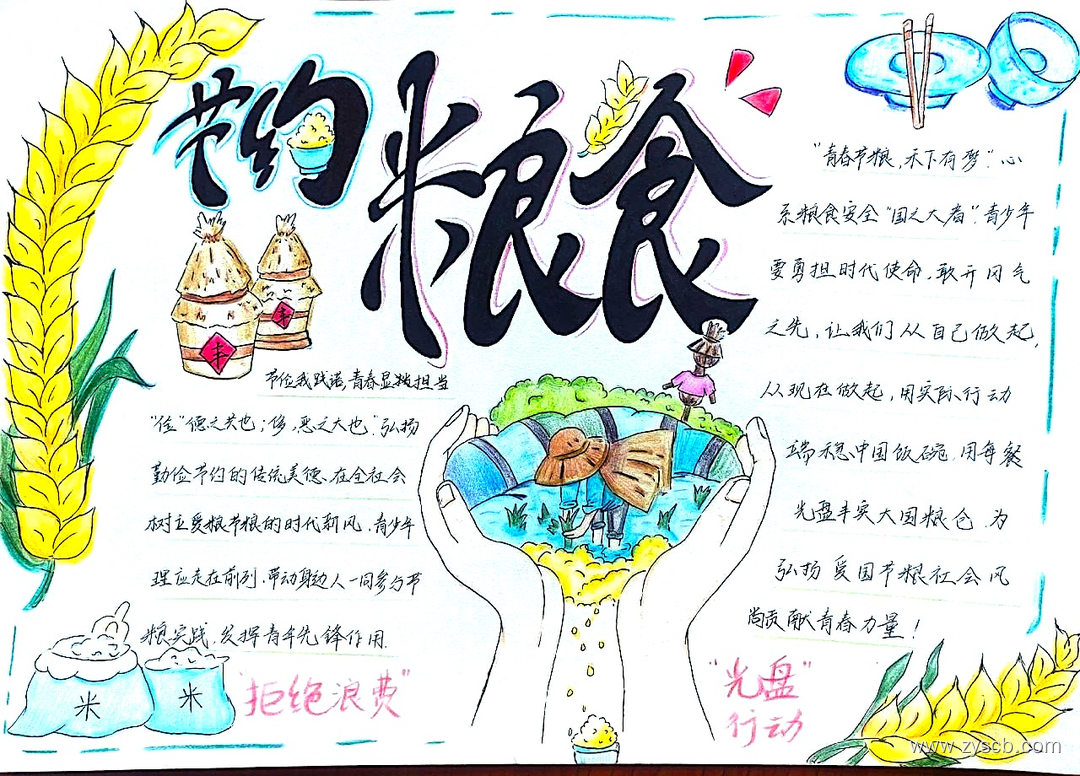 节约粮食
"青春节粮,禾下有梦".心
系粮食安全"国之大者".青少年
要勇担时代使命,敢开风气
之先,让我们从自己做起,
从现在做起,用实际行动
端稳中国饭碗,用每餐
光盘丰实大国粮仓,为
弘扬爱国节粮社会风
尚贡献青春力量!
丰
丰
节俭我践诺,青春显担当
"俭"德之共也;侈,恶之大也".弘扬
勤俭节约的传统美德,在全社会
树立爱粮节粮的时代新风,青少年
理应走在前列,带动身边人一同参与节
粮实战,发挥青年先锋作用.
米
米
"拒绝浪费"
"光盘"
行动
www.zyscb.com